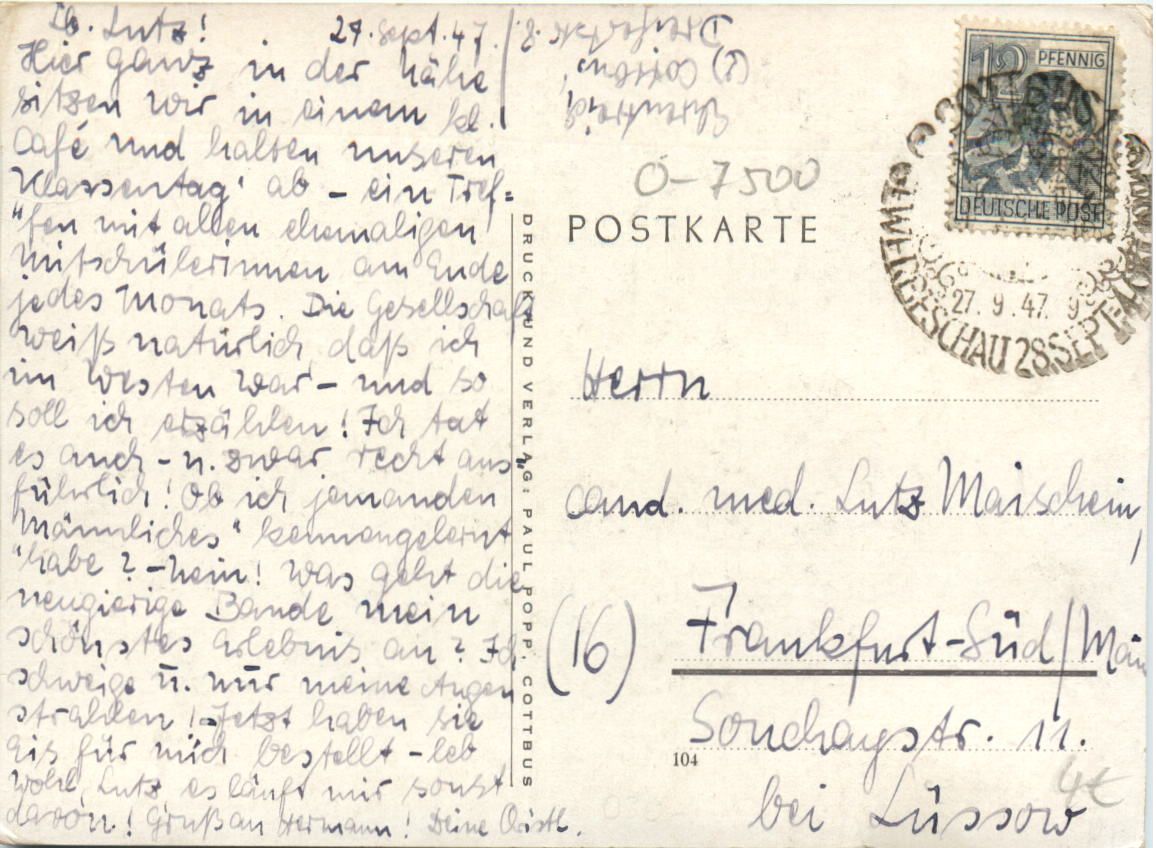 Lb. Lutz! 27. Sept. 47.
Hier ganz in der Nähe
sitzen wir in einem kl.
Café und halten unseren
Klassentag' ab – ein Tref=
"fen mit allen ehemaligen
Mitschülerinnen am Ende
jedes Monats. Die Gesellschaft
weiß natürlich, daß ich
im Westen war – und so
soll ich erzählen! Ich tat
es auch – u. zwar recht aus"
führlich! Ob ich jemanden
"Männliches" kennengelernt
"habe? – Nein! Was geht die
neugierige Bande mein
schönstes Erlebnis an? Ich
schweige u. nur meine Augen
strahlen! Jetzt haben sie
Eis für mich bestellt – leb
wohl, Lutz es läuft mir sonst
davon! Gruß an Hermann! Deine Christl.
(2) Cottbus,
8.
O-7500
POSTKARTE
12 PFENNIG
DEUTSCHE POST
COTTBUS
GEWERBESCHAU 28. SEPT.
27.9.47. 9
DRUCK UND VERLAG: PAUL POPP. COTTBUS
Herrn
cand. med. Lutz Maischein,
(16) Frankfurt-Süd/Main
Sonchaystr. 11.
104
bei Lüssow
4€